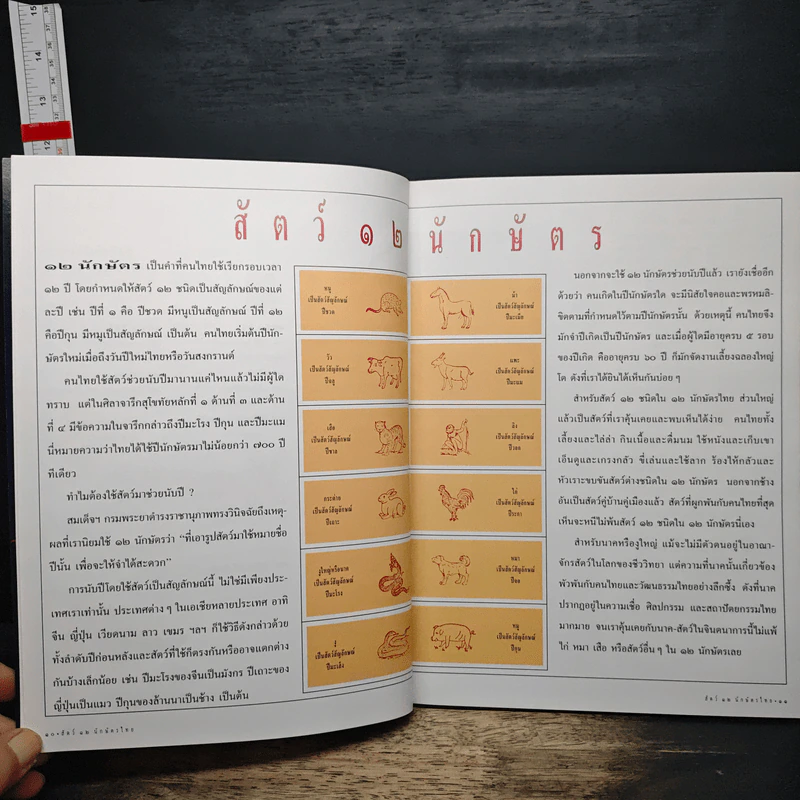 สัตว์ ๑๒ นักษัตร
๑๒ นักษัตร เป็นคำที่คนไทยใช้เรียกรอบเวลา
๑๒ ปี โดยกำหนดให้สัตว์ ๑๒ ชนิดเป็นสัญลักษณ์ของแต่
ละปี เช่น ปีที่ ๑ คือ ปีชวด มีหนูเป็นสัญลักษณ์ ปีที่ ๑๒
คือปีกุน มีหมูเป็นสัญลักษณ์ เป็นต้น คนไทยเริ่มต้นปีนัก-
ษัตรใหม่เมื่อถึงวันปีใหม่ไทยหรือวันสงกรานต์
คนไทยใช้สัตว์ช่วยนับปีมานานแค่ไหนแล้วไม่มีผู้ใด
ทราบ แต่ในศิลาจารึกสุโขทัยหลักที่ ๑ ด้านที่ ๓ และด้าน
ที่ ๔ มีข้อความในจารึกกล่าวถึงปีมะโรง ปีกุน และปีมะแม
นี่หมายความว่าไทยได้ใช้ปีนักษัตรมาไม่น้อยกว่า ๗๐๐ ปี
ทีเดียว
ทำไมต้องใช้สัตว์มาช่วยนับปี ?
สมเด็จฯ กรมพระยาดำรงราชานุภาพทรงวินิจฉัยถึงเหตุ-
ผลที่เรานิยมใช้ ๑๒ นักษัตรว่า “ที่เอารูปสัตว์มาใช้หมายชื่อ
ปีนั้น เพื่อจะให้จำได้สะดวก”
การนับปีโดยใช้สัตว์เป็นสัญลักษณ์นี้ ไม่ใช่มีเพียงประ-
เทศเราเท่านั้น ประเทศต่าง ๆ ในเอเชียหลายประเทศ อาทิ
จีน ญี่ปุ่น เวียดนาม ลาว เขมร ฯลฯ ก็ใช้วิธีดังกล่าวด้วย
ทั้งลำดับปีก่อนหลังและสัตว์ที่ใช้ก็ตรงกันหรืออาจแตกต่าง
กันบ้างเล็กน้อย เช่น ปีมะโรงของจีนเป็นมังกร ปีเถาะของ
ญี่ปุ่นเป็นแมว ปีกุนของล้านนาเป็นช้าง เป็นต้น
๑๐•สัตว์ ๑๒ นักษัตรไทย
หนู
เป็นสัตว์สัญลักษณ์
ปีชวด
วัว
เป็นสัตว์สัญลักษณ์
ปีฉลู
เสือ
เป็นสัตว์สัญลักษณ์
ปีขาล
กระต่าย
เป็นสัตว์สัญลักษณ์
ปีเถาะ
งูใหญ่หรือนาค
เป็นสัตว์สัญลักษณ์
ปีมะโรง
งู
เป็นสัตว์สัญลักษณ์
ปีมะเส็ง
ม้า
เป็นสัตว์สัญลักษณ์
ปีมะเมีย
แพะ
เป็นสัตว์สัญลักษณ์
ปีมะแม
ลิง
เป็นสัตว์สัญลักษณ์
ปีวอก
ไก่
เป็นสัตว์สัญลักษณ์
ปีระกา
หมา
เป็นสัตว์สัญลักษณ์
ปีจอ
หมู
เป็นสัตว์สัญลักษณ์
ปีกุน
นอกจากจะใช้ ๑๒ นักษัตรช่วยนับปีแล้ว เรายังเชื่ออีก
ด้วยว่า คนเกิดในปีนักษัตรใด จะมีนิสัยใจคอและพรหมลิ-
ขิตตามที่กำหนดไว้ตามปีนักษัตรนั้น ด้วยเหตุนี้ คนไทยจึง
มักจำปีเกิดเป็นปีนักษัตร และเมื่อผู้ใดมีอายุครบ ๕ รอบ
ของปีเกิด คืออายุครบ ๖๐ ปี ก็มักจัดงานเลี้ยงฉลองใหญ่
โต ดังที่เราได้ยินได้เห็นกันบ่อย ๆ
สำหรับสัตว์ ๑๒ ชนิดใน ๑๒ นักษัตรไทย ส่วนใหญ่
แล้วเป็นสัตว์ที่เราคุ้นเคยและพบเห็นได้ง่าย คนไทยทั้ง
เลี้ยงและไล่ล่า กินเนื้อและดื่มนม ใช้หนังและเก็บเขา
เอ็นดูและเกรงกลัว ขี่เล่นและใช้ลาก ร้องไห้กลัวและ
หัวเราะขบขันสัตว์ต่างชนิดใน ๑๒ นักษัตร นอกจากช้าง
อันเป็นสัตว์คู่บ้านคู่เมืองแล้ว สัตว์ที่ผูกพันกับคนไทยที่สุด
เห็นจะหนีไม่พ้นสัตว์ ๑๒ ชนิดใน ๑๒ นักษัตรนี้เอง
สำหรับนาคหรืองูใหญ่ แม้จะไม่มีตัวตนอยู่ในอาณา-
จักรสัตว์ในโลกของชีววิทยา แต่ความที่นาคนั้นเกี่ยวข้อง
พัวพันกับคนไทยและวัฒนธรรมไทยอย่างลึกซึ้ง ดังที่นาค
ปรากฏอยู่ในความเชื่อ ศิลปกรรม และสถาปัตยกรรมไทย
มากมาย จนเราคุ้นเคยกับนาค-สัตว์ในจินตนาการนี้ไม่แพ้
ไก่ หมา เสือ หรือสัตว์อื่น ๆ ใน ๑๒ นักษัตรเลย
สัตว์ ๑๒ นักษัตรไทย•๑๑
15
14
13
12